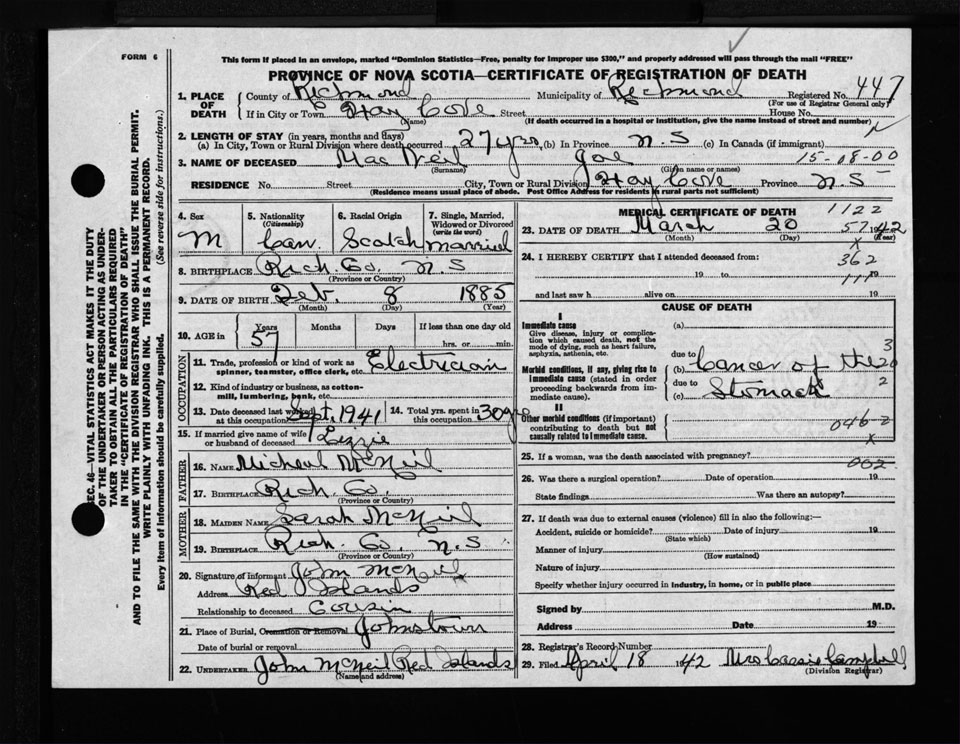 FORM 6
This form if placed in an envelope, marked "Dominion Statistics—Free, penalty for improper use $300," and properly addressed will pass through the mail "FREE"
PROVINCE OF NOVA SCOTIA—CERTIFICATE OF REGISTRATION OF DEATH
1. PLACE OF DEATH County of Richmond Municipality of Richmond Registered No. 447
(For use of Registrar General only)
If in City or Town Hay Cove Street House No.
(Name) (If death occurred in a hospital or institution, give the name instead of street and number)
2. LENGTH OF STAY (in years, months and days)
(a) In City, Town or Rural Division where death occurred 27 yrs (b) In Province N.S (c) In Canada (if immigrant)
3. NAME OF DECEASED Mac Neil Joe 15-08-00
(Surname) (Given name or names)
RESIDENCE No. Street City, Town or Rural Division Hay Cove Province N.S
(Residence means usual place of abode. Post Office Address for residents in rural parts not sufficient)
4. Sex M
5. Nationality (Citizenship) Can.
6. Racial Origin Scotch
7. Single, Married, Widowed or Divorced (write the word) married
8. BIRTHPLACE Rich. Co. N.S
(Province or Country)
9. DATE OF BIRTH Feb. 8 1885
(Month) (Day) (Year)
10. AGE in Years 57 Months Days If less than one day old hrs. or min.
OCCUPATION
11. Trade, profession or kind of work as spinner, teamster, office clerk, etc. Electrician
12. Kind of industry or business, as cotton-mill, lumbering, bank, etc.
13. Date deceased last worked at this occupation Sept. 1941 14. Total yrs. spent in this occupation 30 yrs
15. If married give name of wife or husband of deceased Lizzie
FATHER
16. NAME Micheal McNeil
17. BIRTHPLACE Rich. Co.
MOTHER
18. MAIDEN NAME Sarah McNeil
19. BIRTHPLACE Rich. Co. N.S
(Province or Country)
20. Signature of informant John McNeil
Address Red Islands
Relationship to deceased Cousin
21. Place of Burial, Cremation or Removal Johnstown
Date of burial or removal
22. UNDERTAKER John McNeil Red Islands
(Name and address)
MEDICAL CERTIFICATE OF DEATH 1122
23. DATE OF DEATH March 20 57 1942
(Month) (Day) (Year)
x
24. I HEREBY CERTIFY that I attended deceased from: 362
19 to 111 19
and last saw h alive on 19
CAUSE OF DEATH
I
Immediate cause
Give disease, injury or complication which caused death, not the mode of dying, such as heart failure, asphyxia, asthenia, etc.
(a)
due to
Morbid conditions, if any, giving rise to immediate cause (stated in order proceeding backwards from immediate cause).
(b) Cancer of the
due to
(c) Stomach
3
20
2
II
Other morbid conditions (if important) contributing to death but not causally related to immediate cause.
046 2
x
25. If a woman, was the death associated with pregnancy?
002
26. Was there a surgical operation? Date of operation 19
State findings Was there an autopsy?
27. If death was due to external causes (violence) fill in also the following:—
Accident, suicide or homicide? Date of injury 19
(State which)
Manner of injury
(How sustained)
Nature of injury
Specify whether injury occurred in industry, in home, or in public place
Signed by M.D.
Address Date 19
28. Registrar's Record Number
29. Filed April 18 1942 Mrs Cassie Campbell
(Division Registrar)
SEC. 46—VITAL STATISTICS ACT MAKES IT THE DUTY
OF THE UNDERTAKER OR PERSON ACTING AS UNDER-
TAKER TO OBTAIN ALL THE PARTICULARS REQUIRED
IN THE "CERTIFICATE OF REGISTRATION OF DEATH"
AND TO FILE THE SAME WITH THE DIVISION REGISTRAR WHO SHALL ISSUE THE BURIAL PERMIT.
WRITE PLAINLY WITH UNFADING INK. THIS IS A PERMANENT RECORD.
Every item of Information should be carefully supplied. (See reverse side for instructions.)